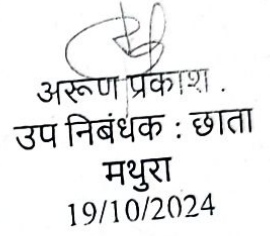 अरूण प्रकाश .
उप निबंधक : छाता
मथुरा
19/10/2024